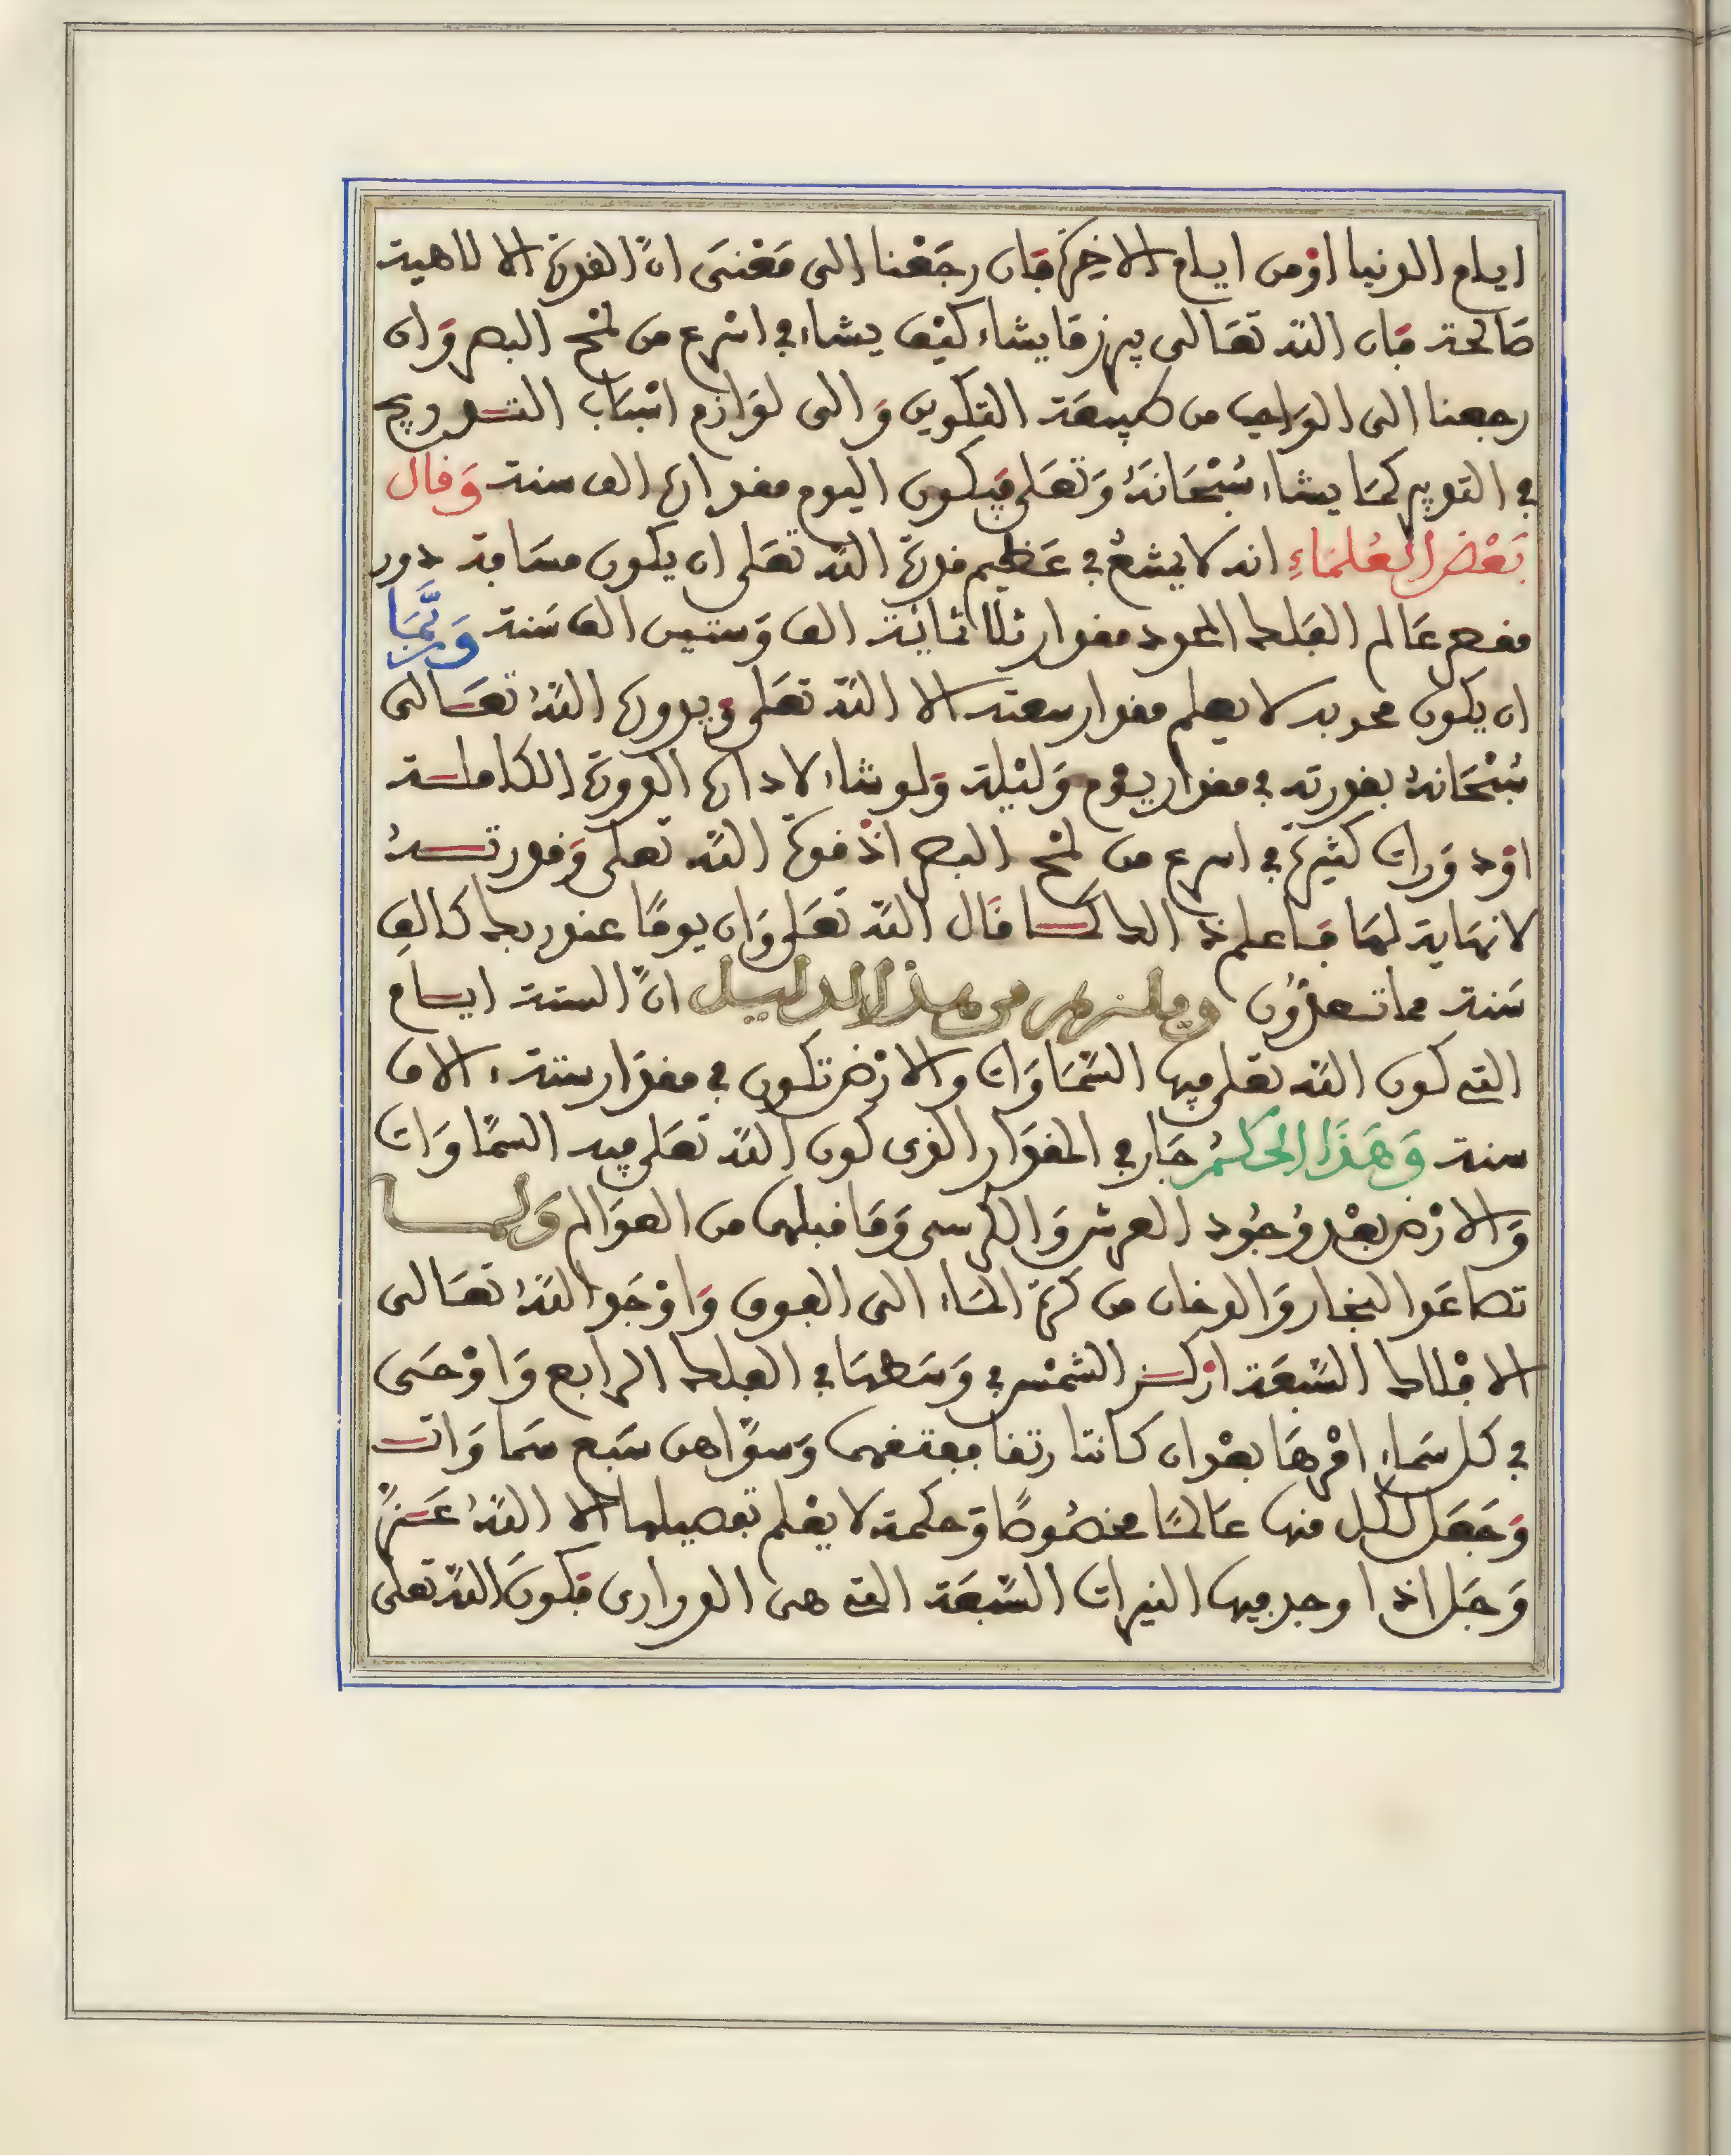 ايام الدنيا اوْمن ايام الاخِرَة فَان رجَعْنا الى مَعْنىَ انَّ القدرَة الالاهية
صَالحة فَان اللّه تعَالى يبرز مَا يشاء كيْف يشاء في اسْرع من لمْح البصر وَان
رجعنا الى الوَاجب من طبيعَة التكوين وَالى لوَازم اسْبَاب التدريج
في التدبير كمَا يشاء سُبْحَانَهُ وَتعَلى فيَكون اليوم مقدارُه الف سنة وَقال
بَعْض العُلمَاءِ انه لا يمنعُ في عَظِيم قدرَة اللّه تعَلى ان يكون مسَافة دور
مقعر عَالم الفَلك المحدد مقدار ثلاثمائة الف وَستين الف سَنة وَربَّمَا
ان يكون محدبه لا يعلم مقدار سعته الا اللّه تعَلى ويدوره اللّهُ تعَالى
سُبْحَانهُ بقدرته في مقدار يوم وَليْلة وَلو شاء لادارَه الدورَة الكاملة
اوْ دوَرات كثيرَة في اسرع من لمْح البصر اذ قوَة اللّه تعلى وَقدرتهُ
لا نهَاية لهَا فَاعلم ذالك كما قَال اللّه تعَلى وَان يومًا عند ربك كالفِ
سَنة مما تعدّون ويلزم من هذا الدليل انَّ الستة ايام
التي كون اللّه تعَلى فيها السَّمَاوَات والارْض تكون في مقدَار ستة ءالاف
سنة وَهَذَا الحكمُ جَار في المقدَار الذى كون اللّه تعَلى فيه السمَّاوَات
وَالارْض بعْد وُجُود العرش وَالكرسى وَمَا قبلهما من العوَالم وَلما
تصَاعَد البخار وَالدخان من كرَة المَاء الى الفوق وَاوْجَد اللّهُ تعَالى
الافْلاك السَّبعَة ارْكز الشمْس في وَسَطهَا في الفلك الرابع وَاوْحَى
في كل سَماء امْرهَا بعْد ان كانتا رتقا ففتقهما وَسوَّاهن سَبع سَماوَات
وَجَعَل لكل منها عَالمًا مخصُوصًا وَحكمة لا يعْلم تفصيلها الا اللّهُ عَزَّ
وَجَل اذ اوجد فيها النيرات السَّبعَة التي هى الدرارى فكونَ اللّه تعلى